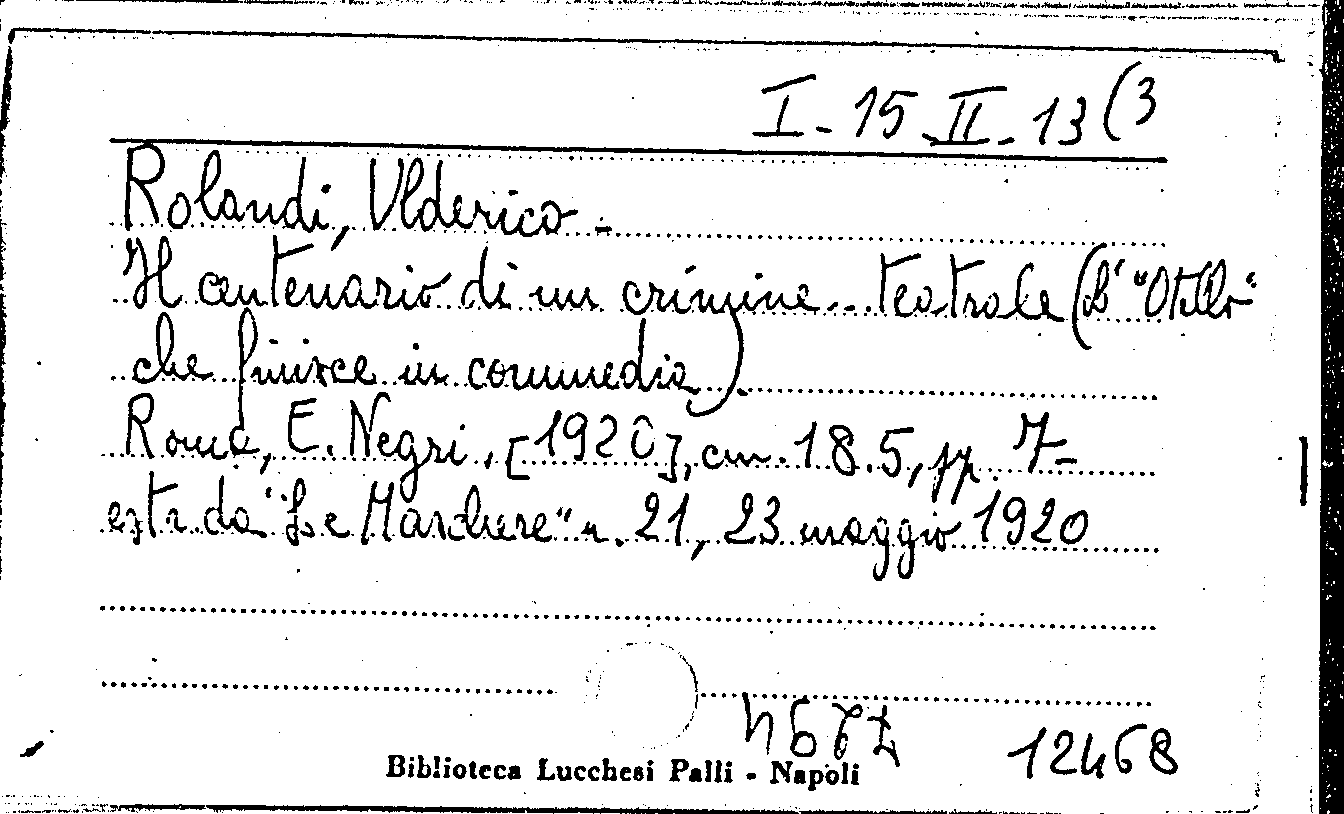 I-15-II-13(3
Rolandi, Ulderico -
Il centenario di un crimine.. teatrale (L' "Otello"
che finisce in commedia)
Roma, E. Negri, [1920], cm. 18.5, pp. 7-
estr. da "Le Maschere" n. 21, 23 maggio 1920
12468
Biblioteca Lucchesi Palli - Napoli